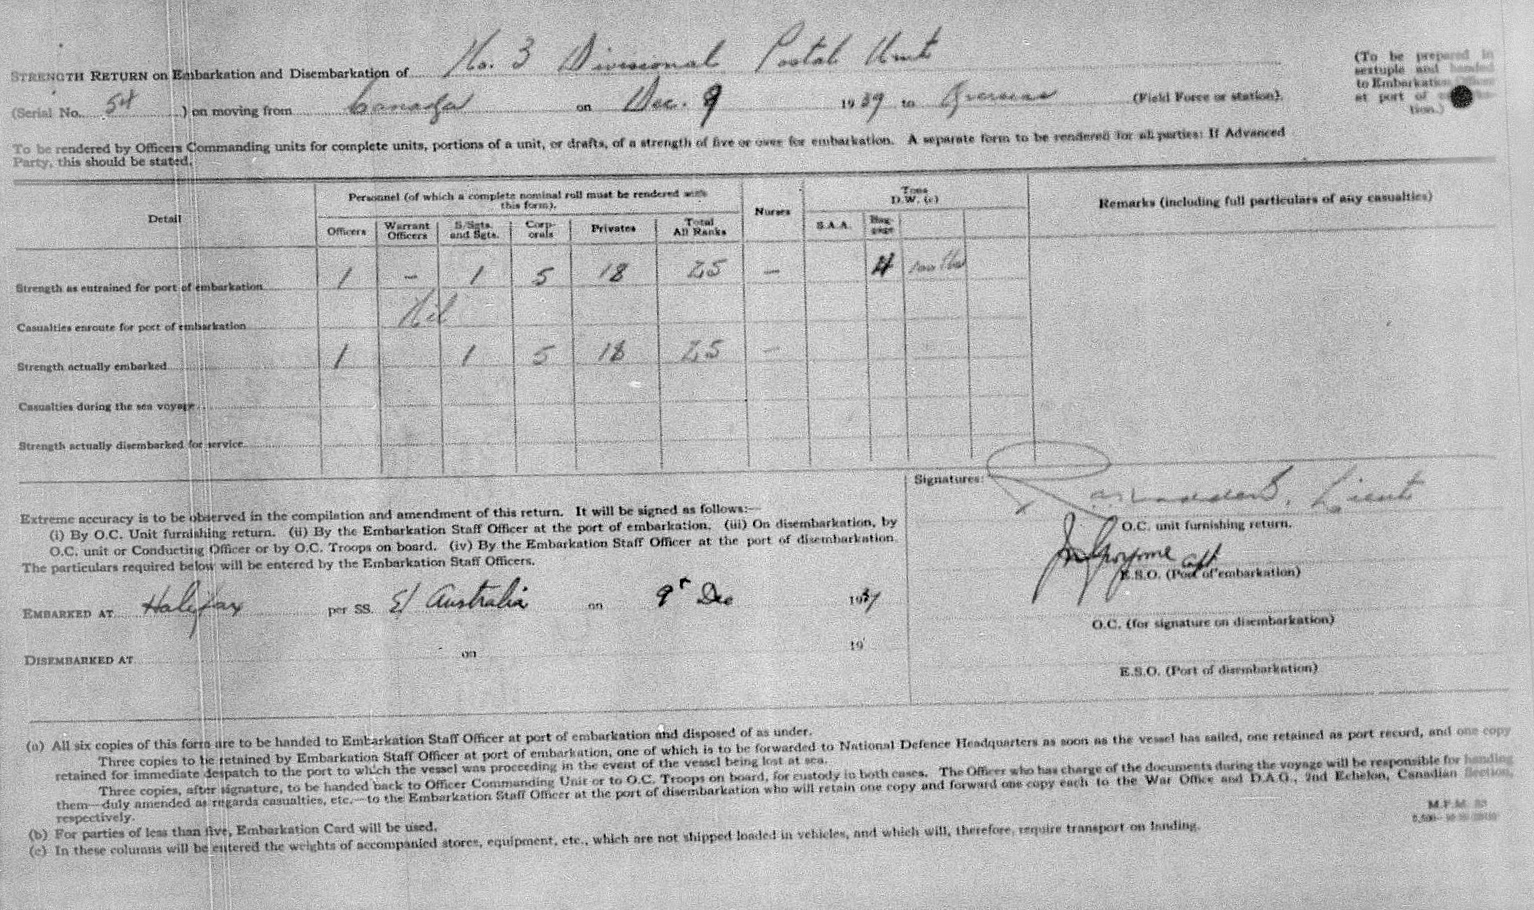 STRENGTH RETURN on Embarkation and Disembarkation of No. 3 Divisional Postal Unit
(To be prepared in sextuple and handed to Embarkation Officer at port of embarkation.)
(Serial No. 54 ) on moving from Canada on Dec. 9 1939 to Overseas (Field Force or station).
To be rendered by Officers Commanding units for complete units, portions of a unit, or drafts, of a strength of five or over for embarkation. A separate form to be rendered for all parties: If Advanced
Party, this should be stated.
Detail
Personnel (of which a complete nominal roll must be rendered with this form).
Nurses
Tons D.W. (c)
Remarks (including full particulars of any casualties)
Officers Warrant Officers S/Sgts. and Sgts. Corporals Privates Total All Ranks S.A.A. Baggage
Strength as entrained for port of embarkation 1 — 1 5 18 25 — 4
Casualties enroute for port of embarkation Nil
Strength actually embarked 1 1 5 18 25 —
Casualties during the sea voyage
Strength actually disembarked for service
Extreme accuracy is to be observed in the compilation and amendment of this return. It will be signed as follows:—
(i) By O.C. Unit furnishing return. (ii) By the Embarkation Staff Officer at the port of embarkation. (iii) On disembarkation, by
O.C. unit or Conducting Officer or by O.C. Troops on board. (iv) By the Embarkation Staff Officer at the port of disembarkation.
The particulars required below will be entered by the Embarkation Staff Officers.
EMBARKED AT Halifax per SS. E/ Australia on 9th Dec 1939
DISEMBARKED AT on 19
Signatures: Lieut
O.C. unit furnishing return.
Capt
E.S.O. (Port of embarkation)
O.C. (for signature on disembarkation)
E.S.O. (Port of disembarkation)
(a) All six copies of this form are to be handed to Embarkation Staff Officer at port of embarkation and disposed of as under.
Three copies to be retained by Embarkation Staff Officer at port of embarkation, one of which is to be forwarded to National Defence Headquarters as soon as the vessel has sailed, one retained as port record, and one copy
retained for immediate despatch to the port to which the vessel was proceeding in the event of the vessel being lost at sea.
Three copies, after signature, to be handed back to Officer Commanding Unit or to O.C. Troops on board, for custody in both cases. The Officer who has charge of the documents during the voyage will be responsible for handing
them—duly amended as regards casualties, etc.—to the Embarkation Staff Officer at the port of disembarkation who will retain one copy and forward one copy each to the War Office and D.A.G., 2nd Echelon, Canadian Section,
respectively.
(b) For parties of less than five, Embarkation Card will be used.
(c) In these columns will be entered the weights of accompanied stores, equipment, etc., which are not shipped loaded in vehicles, and which will, therefore, require transport on landing.
M.F.M.